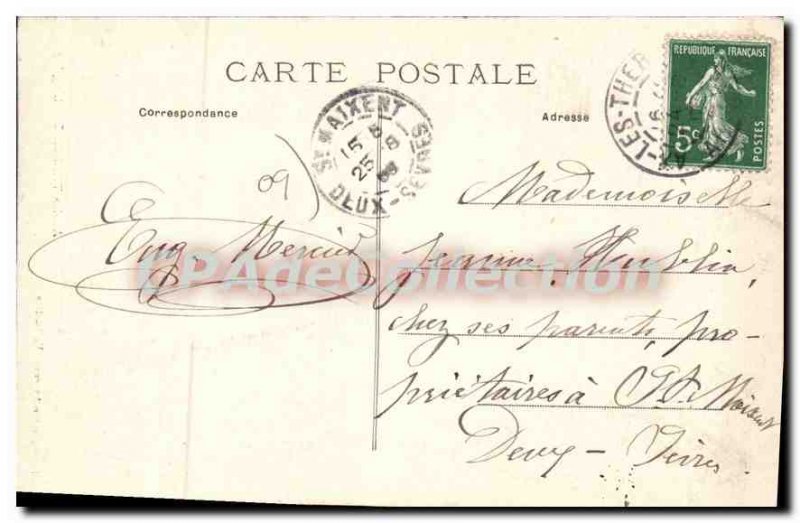 CARTE POSTALE
Correspondance
Adresse
ST MAIXENT
15 5
25 8
09
DEUX-SEVRES
-LES-THER
REPUBLIQUE FRANÇAISE
5c
POSTES
09
Eug. Mercier
CPAdeCollection
Mademoiselle
Jeanne
chez ses parents, pro-
priétaires à St Maixent
Deux-Sèvres